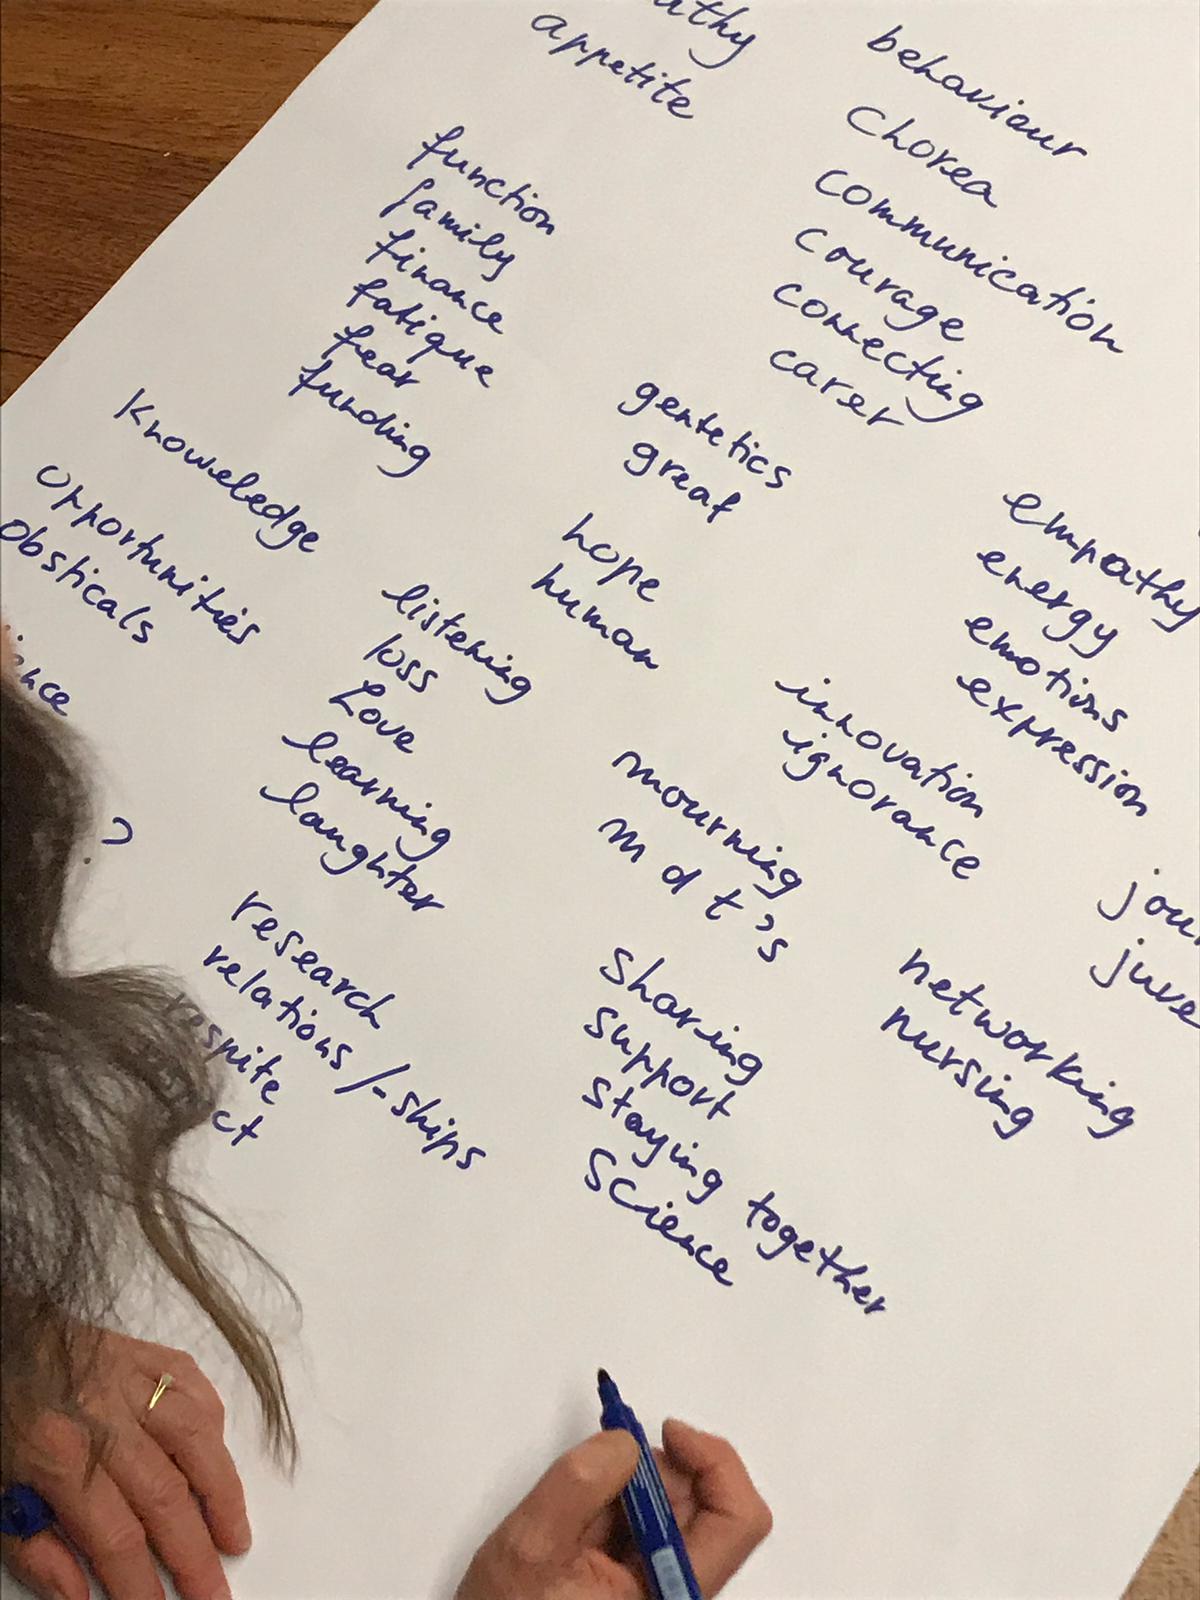 appetite
behaviour
Chorea
communication
courage
connecting
carer
function
family
finance
fatigue
fear
funding
gentetics
great
empathy
energy
emotions
expression
Knoweledge
hope
human
opportunities
obsticals
listening
loss
Love
learning
laughter
innovation
ignorance
mourning
m d t's
?
research
relations/-ships
respite
sharing
support
staying together
Science
networking
nursing